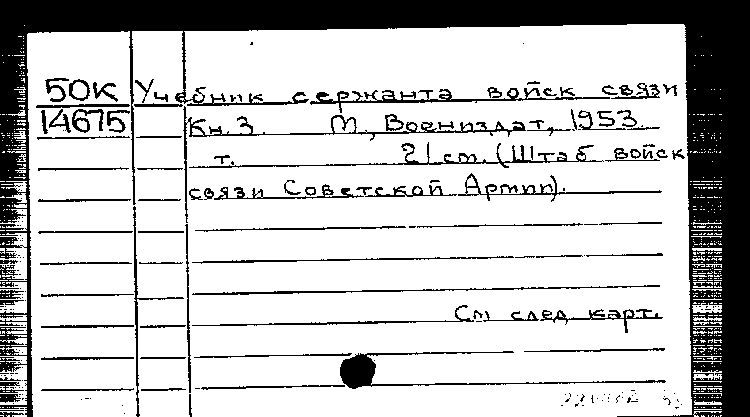 50К Учебник сержанта войск связи
14675 Кн. 3. М., Воениздат, 1953.
т. 21 см. (Штаб войск
связи Советской Армии).
См след. карт.